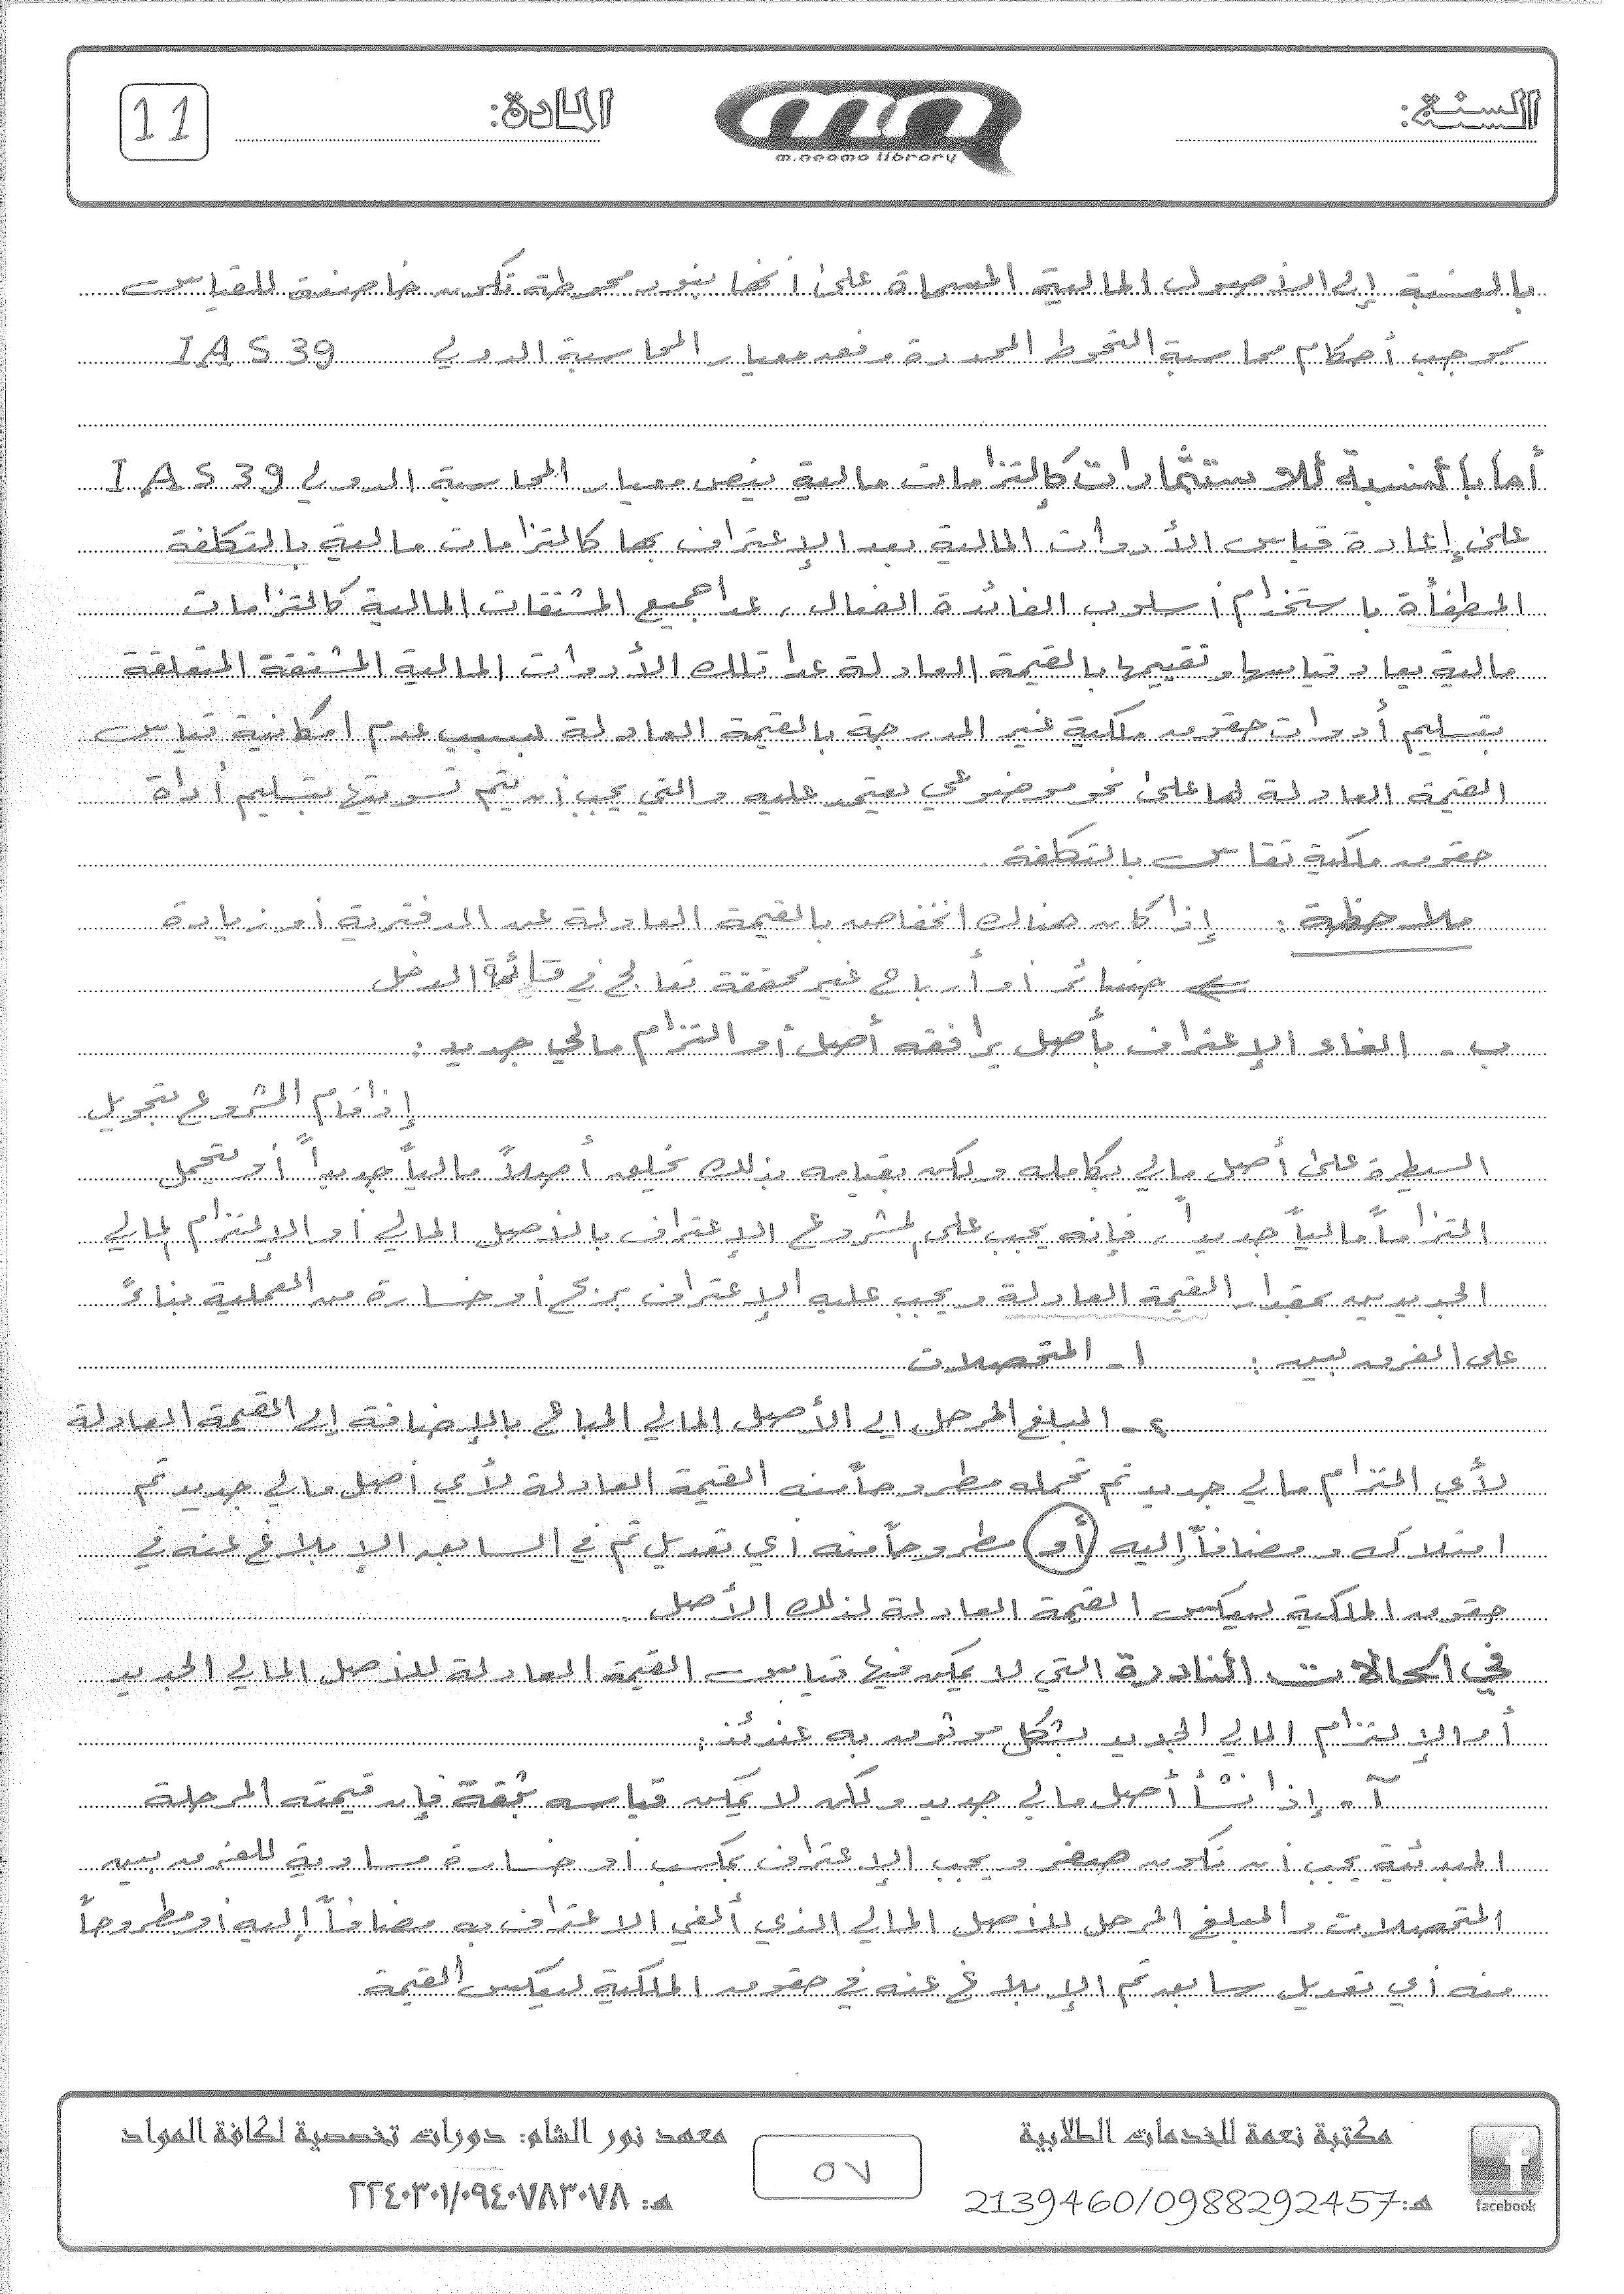 السنة:
m.neama library
المادة:
11
بالنسبة إلى الأصول المالية المسماة على أنها بنود محوطة تكون خاضعة للقياس
بموجب أحكام محاسبة التحوط المحددة وفق معيار المحاسبة الدولي IAS 39
أما بالنسبة للاستثمارات كإلتزامات مالية ينص معيار المحاسبة الدولي IAS 39
على إعادة قياس الأدوات المالية بعد الإعتراف بها كالتزامات مالية بالتكلفة
المطفأة باستخدام أسلوب الفائدة الفعال، عدا جميع المشتقات المالية كالتزامات
مالية يعاد قياسها وتقييمها بالقيمة العادلة عدا تلك الأدوات المالية المشتقة المتعلقة
بتسليم أدوات حقوق ملكية غير المدرجة بالقيمة العادلة لسبب عدم امكانية قياس
القيمة العادلة لها على نحو موضوعي يعتمد عليه والتي يجب أن يتم تسويتها بتسليم أداة
حقوق ملكية تقاس بالتكلفة.
ملاحظة: إذا كان هناك انخفاض بالقيمة العادلة عن الدفترية أو زيادة
خسائر أو أرباح غير محققة تعالج في قائمة الدخل
ب - الغاء الإعتراف بأصل يرافقه أصل أو التزام مالي جديد:
إذا قام المشروع بتحويل
السيطرة على أصل مالي بكامله ولكن بقيامه بذلك يخلق أصلاً مالياً جديداً أو يتحمل
التزاماً مالياً جديداً، فإنه يجب على المشروع الإعتراف بالأصل المالي أو الإلتزام المالي
الجديدين بمقدار القيمة العادلة ويجب عليه الإعتراف بربح أو خسارة من العملية بناءً
على الفرق بين: ١- المتحصلات
٢- المبلغ المرحل الى الأصل المالي المباع بالإضافة إلى القيمة العادلة
لأي التزام مالي جديد تم تحمله مطروحاً منه القيمة العادلة لأي أصل مالي جديد تم
امتلاكه ومضافاً إليه أو مطروحاً منه أي تعديل تم في السابق الإبلاغ عنه في
حقوق الملكية ليعكس القيمة العادلة لذلك الأصل.
في الحالات النادرة التي لا يمكن فيها قياس القيمة العادلة للأصل المالي الجديد
أو الإلتزام المالي الجديد بشكل موثوق به عندئذ:
آ - إذا نشأ أصل مالي جديد ولكن لا يمكن قياسه بثقة فإن قيمته المرحلة
المبدئية يجب أن تكون صفر ويجب الإعتراف بمكسب أو خسارة مساوية للفرق بين
المتحصلات والمبلغ المرحل للأصل المالي الذي ألغي الاعتراف به مضافاً إليه أو مطروحاً
منه أي تعديل سابق تم الإبلاغ عنه في حقوق الملكية ليعكس القيمة
facebook
مكتبة نعمة للخدمات الطلابية
هـ: 2139460/0988292457
٥٧
معهد نور الشام: دورات تخصصية لكافة المواد
هـ: ٢٢٤٠٣٠١/٠٩٤٠٧٨٣٠٧٨